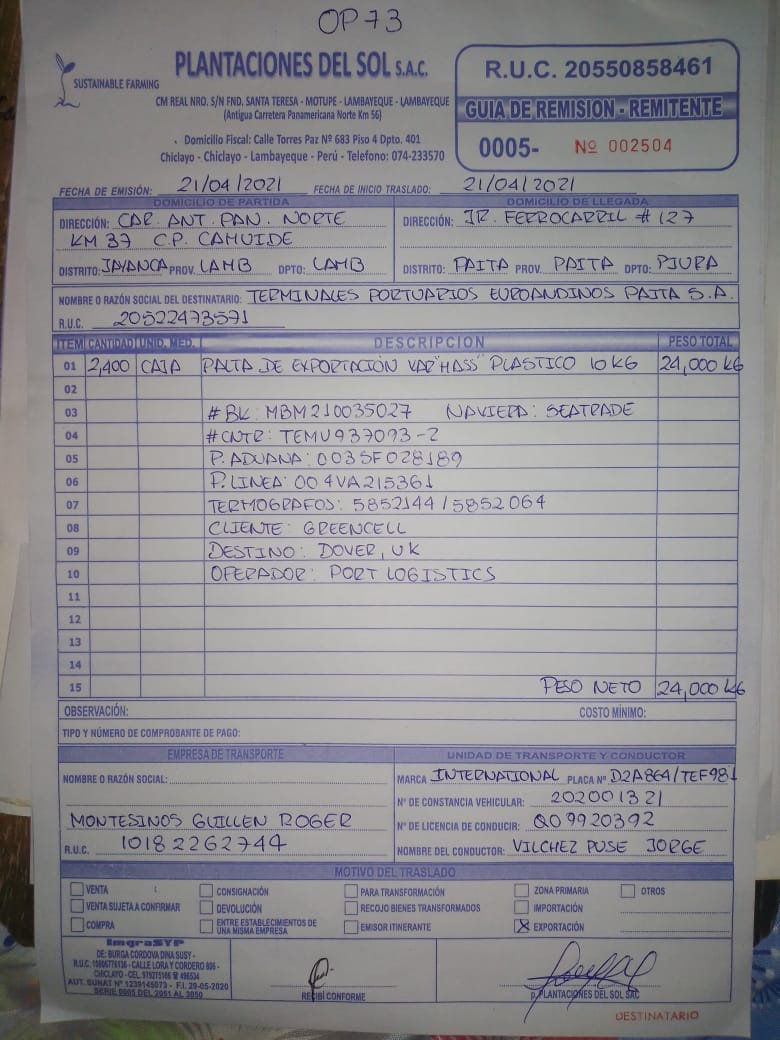 OP 73
SUSTAINABLE FARMING
PLANTACIONES DEL SOL S.A.C.
CM REAL NRO. S/N FND. SANTA TERESA - MOTUPE - LAMBAYEQUE - LAMBAYEQUE
(Antigua Carretera Panamericana Norte Km 56)
Domicilio Fiscal: Calle Torres Paz Nº 683 Piso 4 Dpto. 401
Chiclayo - Chiclayo - Lambayeque - Perú - Telefono: 074-233570
R.U.C. 20550858461
GUIA DE REMISION - REMITENTE
0005- Nº 002504
FECHA DE EMISIÓN: 21/04/2021 FECHA DE INICIO TRASLADO: 21/04/2021
DOMICILIO DE PARTIDA
DIRECCIÓN: CAR. ANT. PAN. NORTE
KM 37 C.P. CAHUIDE
DISTRITO: JAYANCA PROV. LAMB DPTO: LAMB
DOMICILIO DE LLEGADA
DIRECCIÓN: JR. FERROCARRIL # 127
DISTRITO: PAITA PROV. PAITA DPTO: PIURA
NOMBRE O RAZÓN SOCIAL DEL DESTINATARIO: TERMINALES PORTUARIOS EUROANDINOS PAITA S.A.
R.U.C. 20522473571
ITEM CANTIDAD UNID. MED. DESCRIPCION PESO TOTAL
01 2,400 CAJA PALTA DE EXPORTACIÓN VAR "HASS" PLASTICO 10 KG 24,000 KG
02
03 # BK: MBM210035027 NAVIERA: SEATRADE
04 # CNTR: TEMU937093-2
05 P. ADUANA: 0035F028189
06 P. LINEA: 004VA215361
07 TERMOGRAFOS: 5852144 / 5852064
08 CLIENTE: GREENCELL
09 DESTINO: DOVER, UK
10 OPERADOR: PORT LOGISTICS
11
12
13
14
15 PESO NETO 24,000 KG
OBSERVACIÓN: COSTO MÍNIMO:
TIPO Y NÚMERO DE COMPROBANTE DE PAGO:
EMPRESA DE TRANSPORTE
NOMBRE O RAZÓN SOCIAL:
MONTESINOS GUILLEN ROGER
R.U.C. 10182262744
UNIDAD DE TRANSPORTE Y CONDUCTOR
MARCA INTERNATIONAL PLACA Nº D2A864/TEF981
Nº DE CONSTANCIA VEHICULAR: 202001321
Nº DE LICENCIA DE CONDUCIR: Q09920392
NOMBRE DEL CONDUCTOR: VILCHEZ PUSE JORGE
MOTIVO DEL TRASLADO
VENTA CONSIGNACIÓN PARA TRANSFORMACIÓN ZONA PRIMARIA OTROS
VENTA SUJETA A CONFIRMAR DEVOLUCIÓN RECOJO BIENES TRANSFORMADOS IMPORTACIÓN
COMPRA ENTRE ESTABLECIMIENTOS DE UNA MISMA EMPRESA EMISOR ITINERANTE X EXPORTACIÓN
ImgraSYP
DE: BURGA CORDOVA DINA SUSY -
R.U.C. 10806778136 - CALLE LORA Y CORDERO 806 -
CHICLAYO - CEL. 979275166 ☎ 496534
AUT. SUNAT Nº 1239145073 - F.I. 29-05-2020
SERIE 0005 DEL 2051 AL 3050
RECIBÍ CONFORME
p. PLANTACIONES DEL SOL SAC
DESTINATARIO